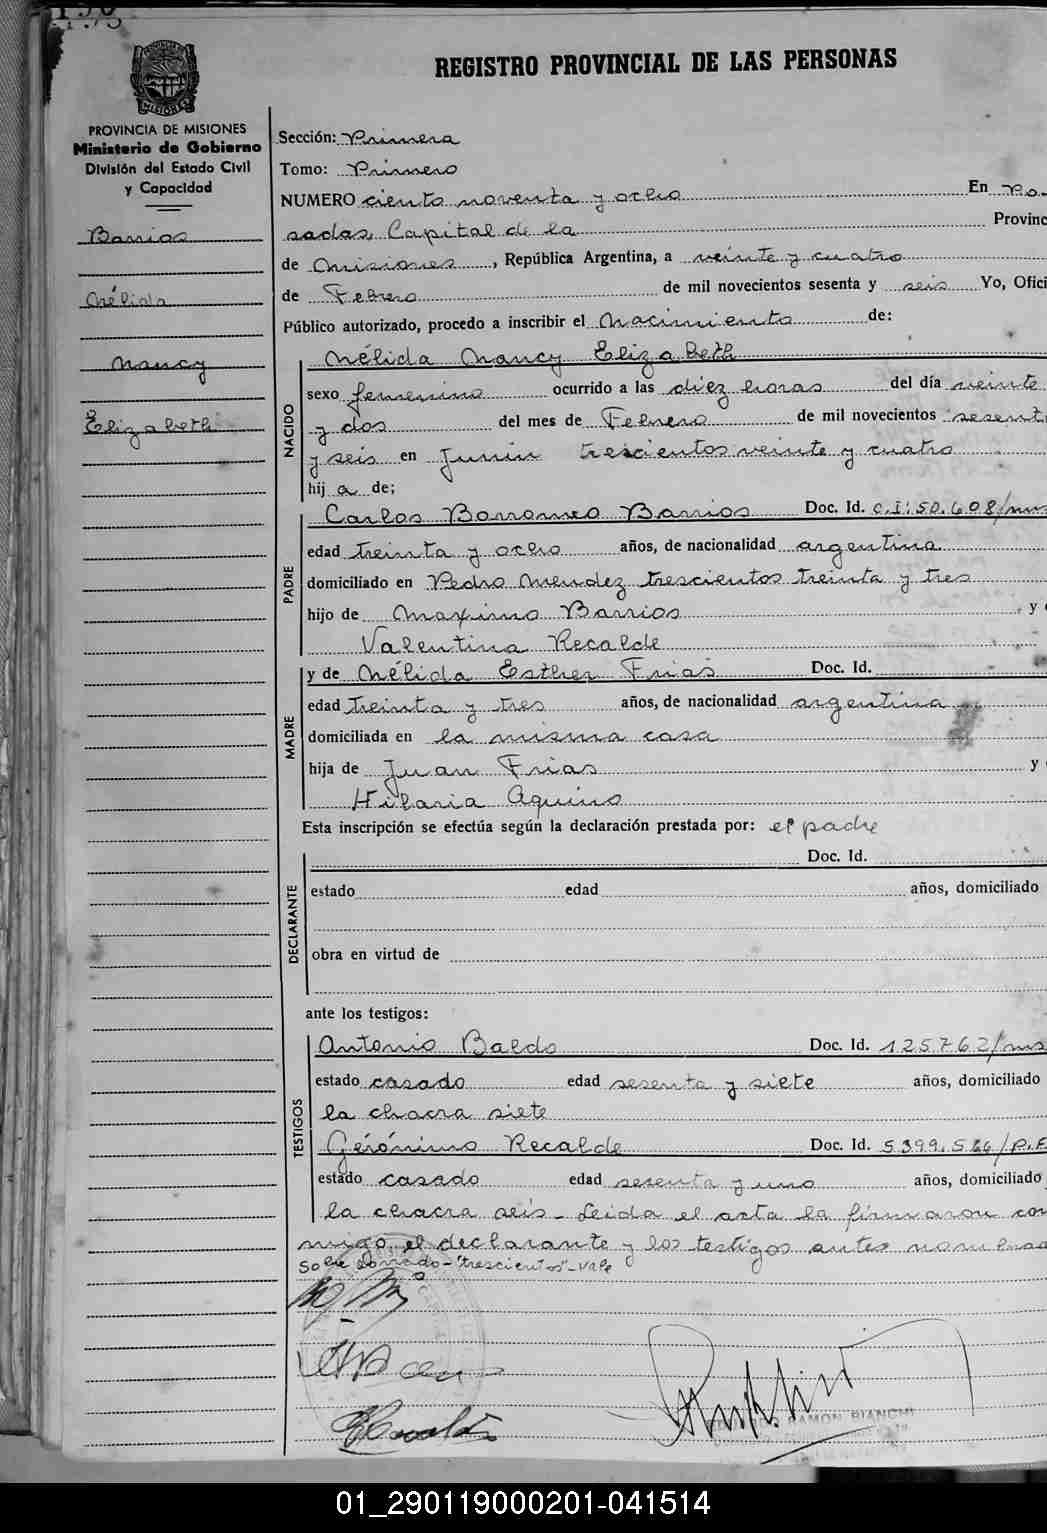 REGISTRO PROVINCIAL DE LAS PERSONAS
MISIONES
PROVINCIA DE MISIONES
Ministerio de Gobierno
División del Estado Civil
y Capacidad
Barrios
Nélida
Nancy
Elizabeth
Sección: Primera
Tomo: Primero
NUMERO ciento noventa y ocho En Po-
sadas, Capital de la Provinc
de Misiones, República Argentina, a veinte y cuatro
de Febrero de mil novecientos sesenta y seis Yo, Ofici
Público autorizado, procedo a inscribir el Nacimiento de:
NACIDO
Nélida Nancy Elizabeth
sexo femenino ocurrido a las diez horas del día veinte
y dos del mes de Febrero de mil novecientos sesent
y seis en Junín trescientos veinte y cuatro
hij a de;
PADRE
Carlos Borromeo Barrios Doc. Id. C.I: 50.608/mns
edad treinta y ocho años, de nacionalidad argentina
domiciliado en Pedro Mendez trescientos treinta y tres
hijo de Maximo Barrios y
Valentina Recalde
MADRE
y de Nélida Esther Frias Doc. Id.
edad treinta y tres años, de nacionalidad argentina
domiciliada en la misma casa
hija de Juan Frias y
Hilaria Aquino
Esta inscripción se efectúa según la declaración prestada por: el padre
DECLARANTE
Doc. Id.
estado edad años, domiciliado
obra en virtud de
ante los testigos:
TESTIGOS
Antonio Baldo Doc. Id. 125762/mns
estado casado edad sesenta y siete años, domiciliado
la chacra siete
Gerónimo Recalde Doc. Id. 5399.566/P.F
estado casado edad sesenta y uno años, domiciliado
la chacra seis - Leida el acta la firmaron con
migo, el declarante y los testigos antes nombrad
Sobre borrado - "trescientos" - vale
RAMON BIANCHI
01_290119000201-041514